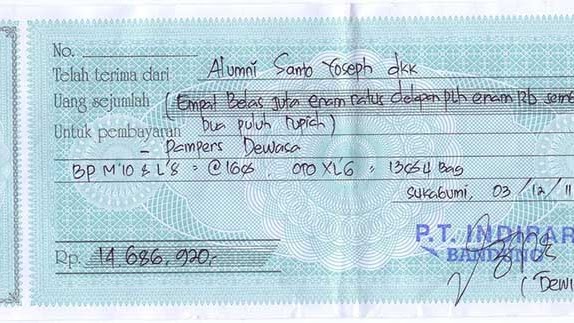 No.
Telah terima dari Alumni Santo Yoseph dkk
Uang sejumlah (Empat Belas juta enam ratus delapan plh enam rb sem
Dua puluh rupiah)
Untuk pembayaran
- Pampers Dewasa
BP M'10 & L'8 = @168 OTO XL'6 = 13 Bag
Sukabumi, 03/12/11
P.T. INDIPAR
BANDUNG
Rp. 14.686.920,-
(Dewi